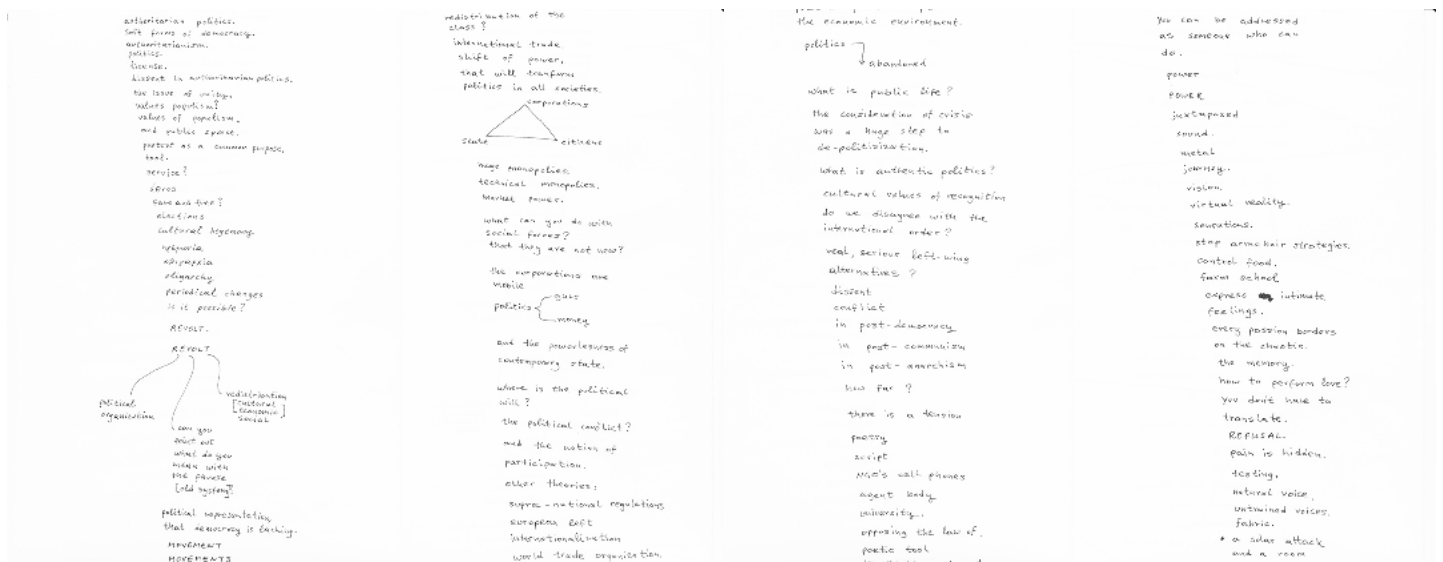 authoritarian politics.
soft forms of democracy.
authoritarianism.
politics.
license.
dissent in authoritarian politics.
the issue of unity.
values populism?
values of populism.
and public space.
pretext as a common purpose.
tool.
service?
save and free?
elections
cultural hegemony
oligarchy
periodical changes
is it possible?
REVOLT.
REVOLT
political
organization
redistribution
[cultural]
economic
social
can you
point out
what do you
mean with
the phrase
[old system]?
political representation
that democracy is lacking.
MOVEMENT
MOVEMENTS
redistribution of the
class?
international trade.
shift of power.
that will transform
politics in all societies.
corporations
state
citizens
huge monopolies.
technical monopolies.
market power.
what can you do with
social forces?
that they are not now?
the corporations are
mobile
politics
guns
money
and the powerlesness of
contemporary state.
where is the political
will?
the political conflict?
and the notion of
participation.
other theories:
supra-national regulations
european left
internationalization
world trade organization.
the economic environment.
politics
abandoned
what is public life?
the consideration of crisis
was a huge step to
de-politizization.
what is authentic politics?
cultural values of recognition
do we disagree with the
international order?
real, serious left-wing
alternatives?
dissent
conflict
in post-democracy
in post-communism
in post-anarchism
how far?
there is a tension
poetry
script
NGO's cell phones
agent body
university.
opposing the law of.
poetic tool
You can be addressed
as someone who can
do.
power
POWER
juxtaposed
sound.
metal
journey.
vision.
virtual reality.
sensations.
stop armchair strategies.
control food.
farm school
express intimate
feelings.
every passion borders
on the chaotic.
the memory.
how to perform love?
you don't have to
translate.
REFUSAL.
pain is hidden.
testing.
natural voice.
untrained voices.
fabric.
* a solar attack
and a room